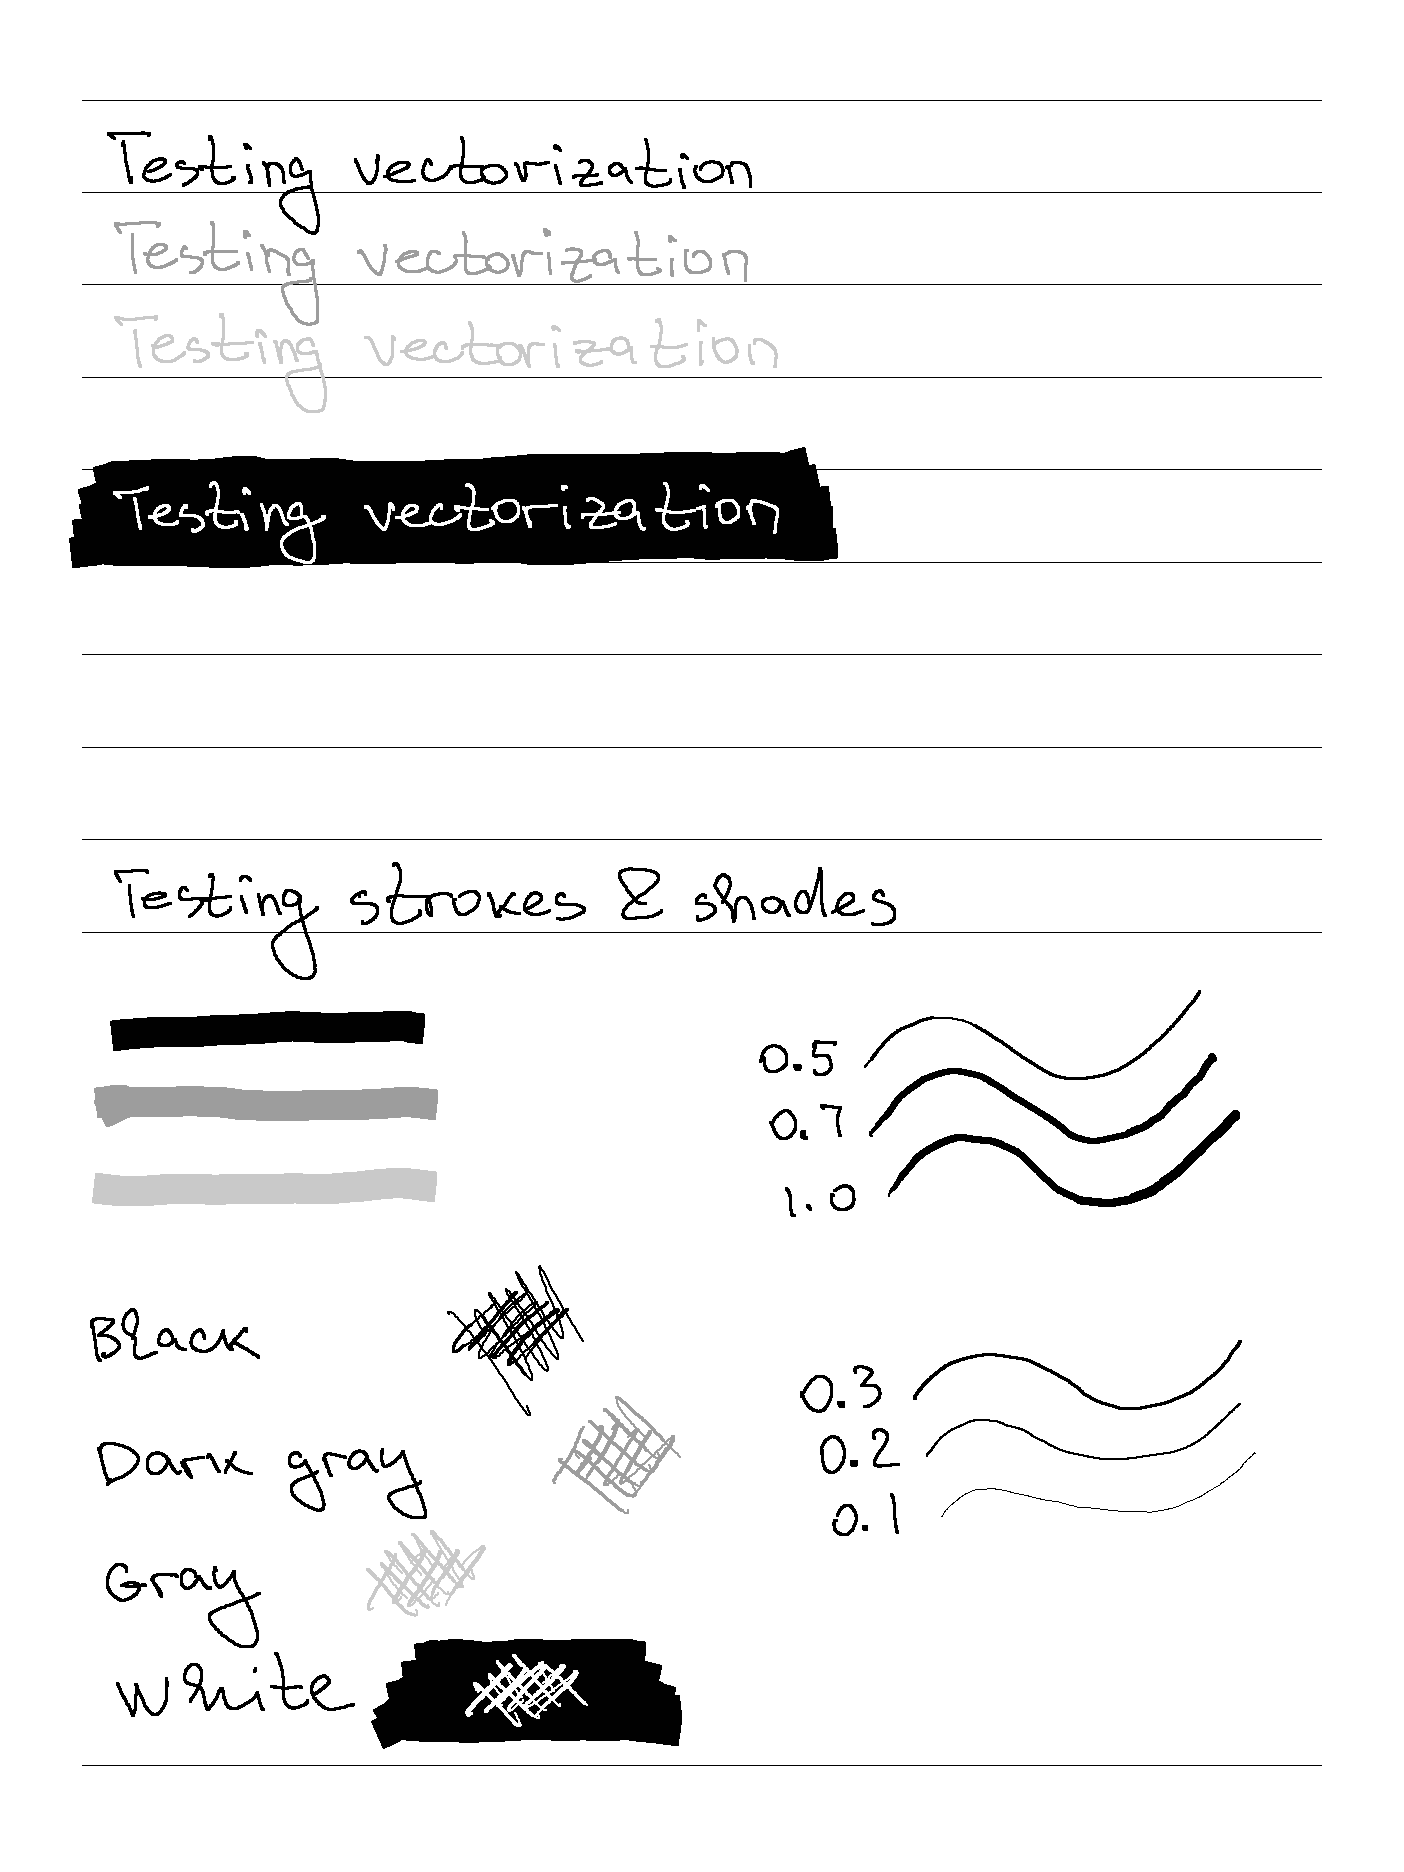 Testing vectorization
Testing vectorization
Testing vectorization
Testing vectorization
Testing strokes & shades
0.5
0.7
1.0
Black
Dark gray
Gray
White
0.3
0.2
0.1